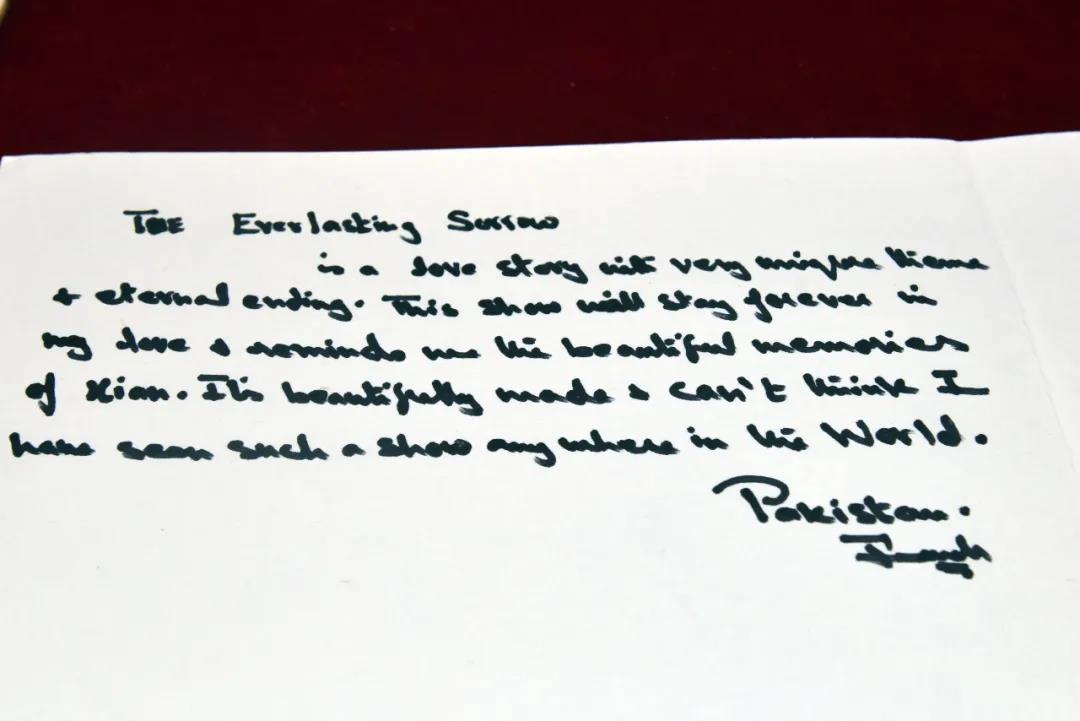 THE Everlasting Sorrow
is a love story with very unique theme
& eternal ending. This show will stay forever in
my love & reminds me the beautiful memories
of Xian. It's beautifully made & can't think I
have seen such a show anywhere in the World.
Pakistan.